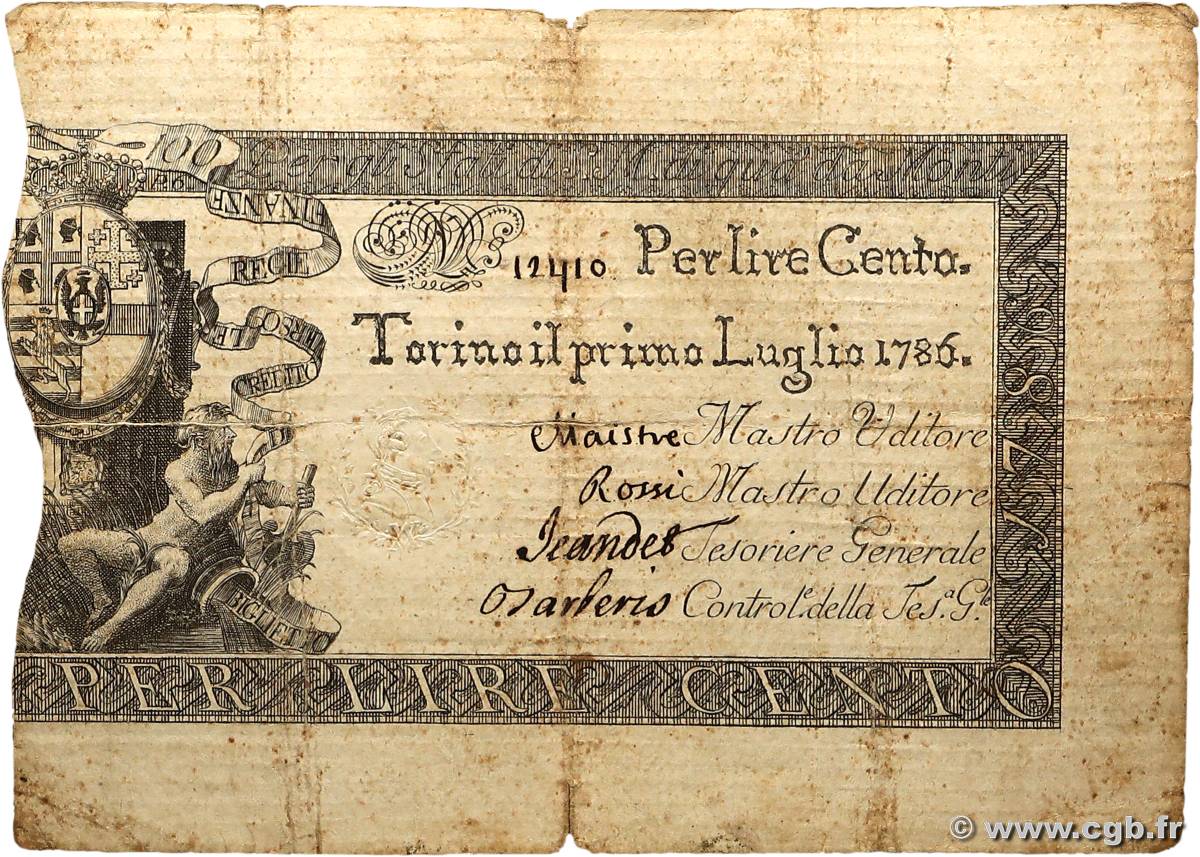 100 Per gli Stati di S. M. di qua' da Monti
FINANZE
REGIE
CREDITO
DI
BIGLIETTI
12410 Per lire Cento.
Torino il primo Luglio 1786.
Maistre Mastro Uditore
Rossi Mastro Uditore
Jeandet Tesoriere Generale
Barberis Control.e della Tes.a G.le
1786
PER LIRE CENTO
© www.cgb.fr